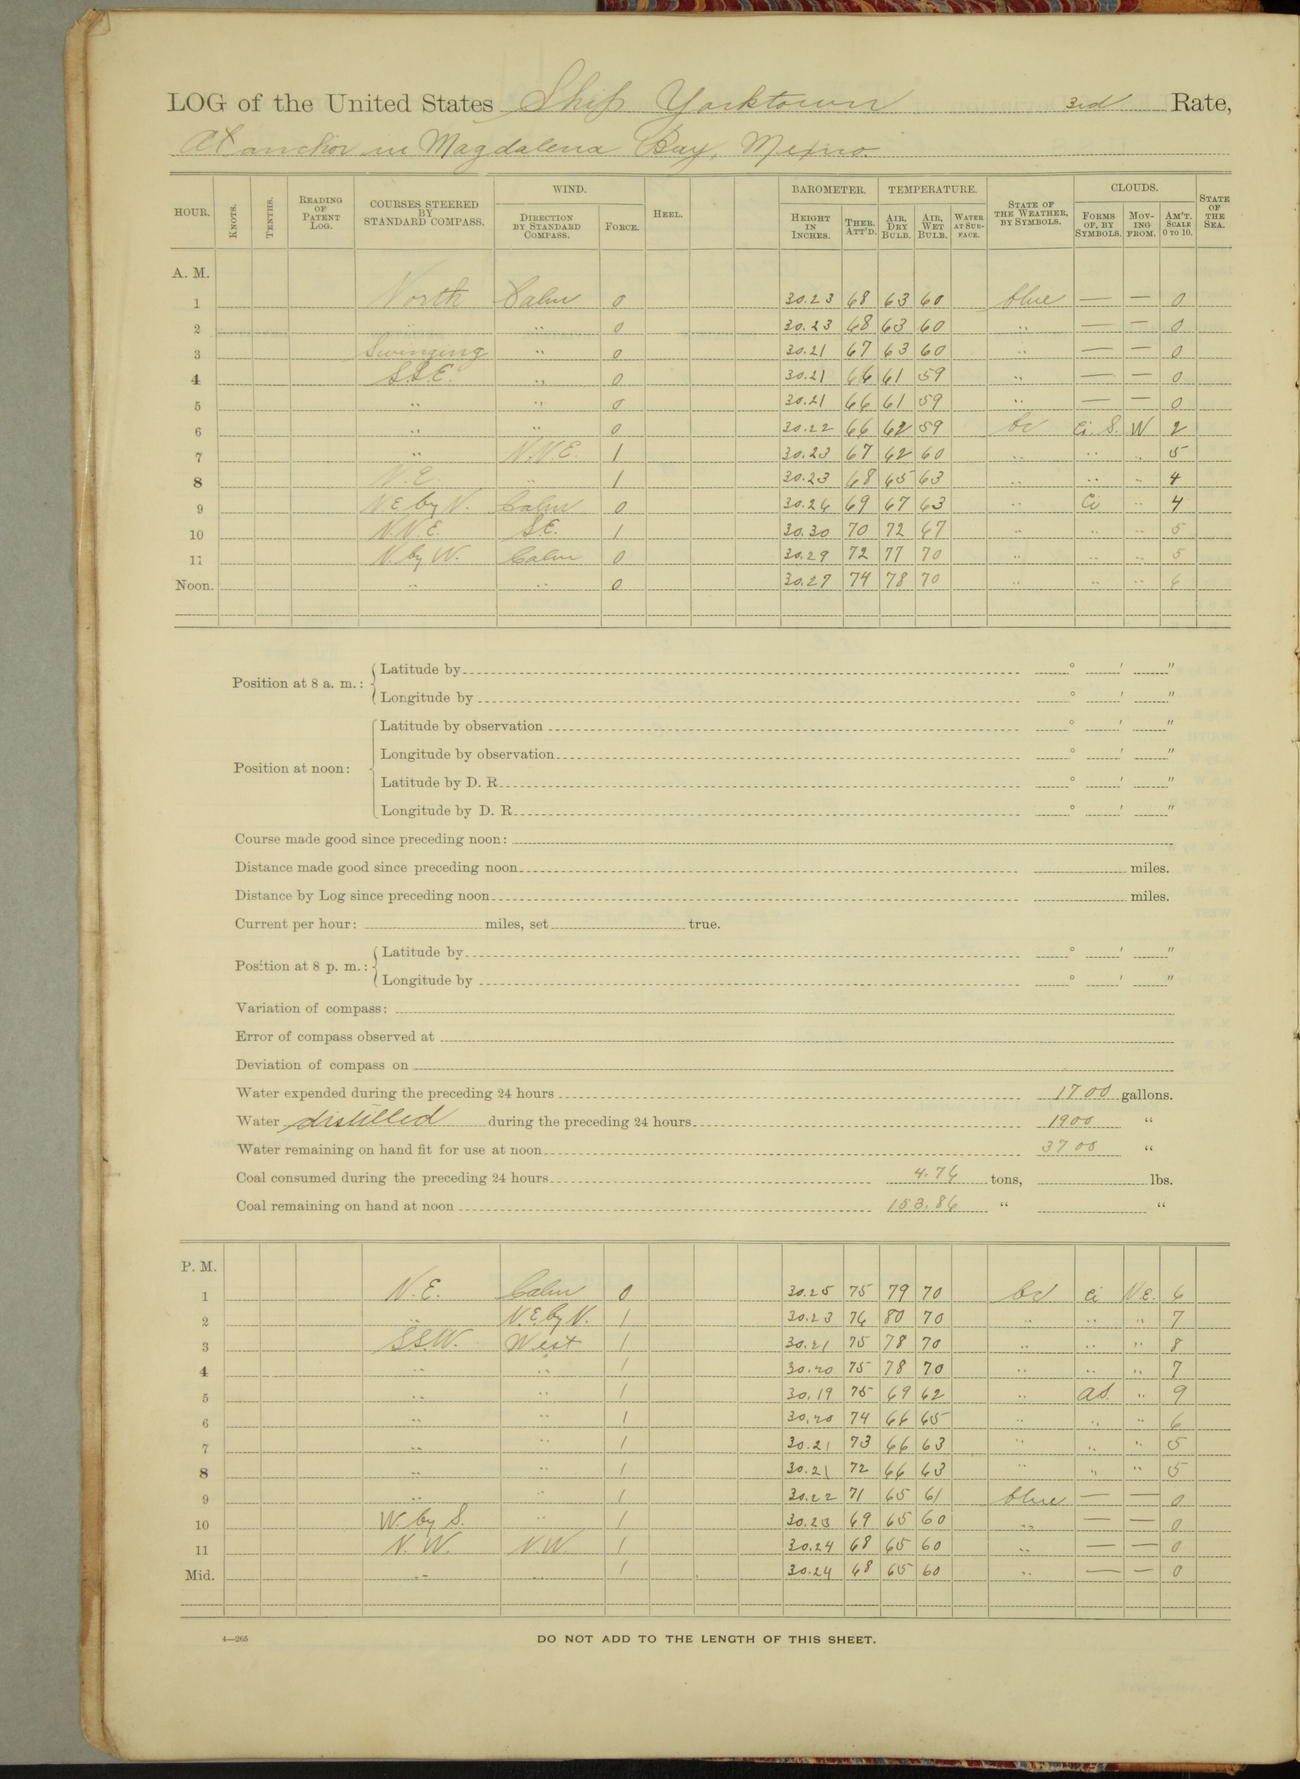 LOG of the United States Ship Yorktown 3rd Rate,
At anchor in Magdalena Bay, Mexico.
HOUR. KNOTS. TENTHS. READING OF PATENT LOG. COURSES STEERED BY STANDARD COMPASS. WIND. DIRECTION BY STANDARD COMPASS. FORCE. HEEL. BAROMETER. HEIGHT IN INCHES. THER. ATT'D. TEMPERATURE. AIR, DRY BULB. AIR, WET BULB. WATER AT SURFACE. STATE OF THE WEATHER, BY SYMBOLS. CLOUDS. FORMS OF, BY SYMBOLS. MOVING FROM. AM'T. SCALE 0 TO 10. STATE OF THE SEA.
A. M.
1 North Calm 0 30.23 68 63 60 blue — — 0
2 " " 0 30.23 68 63 60 " — — 0
3 Swinging " 0 30.21 67 63 60 " — — 0
4 S.S.E. " 0 30.21 66 61 59 " — — 0
5 " " 0 30.21 66 61 59 " — — 0
6 " " 0 30.22 66 62 59 bc Ci. S. W 2
7 " N.N.E. 1 30.23 67 62 60 " " " 5
8 N.E. " 1 30.23 68 65 63 " " " 4
9 NE by N. Calm 0 30.26 69 67 63 " Ci " 4
10 N.N.E. S.E. 1 30.30 70 72 67 " " " 5
11 N. by W. Calm 0 30.29 72 77 70 " " " 5
Noon. " " 0 30.27 74 78 70 " " " 6
Position at 8 a. m.: Latitude by ° ' "
Longitude by ° ' "
Latitude by observation ° ' "
Position at noon: Longitude by observation ° ' "
Latitude by D. R. ° ' "
Longitude by D. R. ° ' "
Course made good since preceding noon:
Distance made good since preceding noon miles.
Distance by Log since preceding noon miles.
Current per hour: miles, set true.
Position at 8 p. m.: Latitude by ° ' "
Longitude by ° ' "
Variation of compass:
Error of compass observed at
Deviation of compass on
Water expended during the preceding 24 hours 1700 gallons.
Water distilled during the preceding 24 hours 1900 "
Water remaining on hand fit for use at noon 3700 "
Coal consumed during the preceding 24 hours 4.76 tons, lbs.
Coal remaining on hand at noon 153.86 " "
P. M.
1 N.E. Calm 0 30.25 75 79 70 bc Ci N.E. 6
2 " N.E. by N. 1 30.23 76 80 70 " " " 7
3 S.S.W. West 1 30.21 75 78 70 " " " 8
4 " " 1 30.20 75 78 70 " " " 7
5 " " 1 30.19 75 69 62 " A.S. " 9
6 " " 1 30.20 74 66 65 " " " 6
7 " " 1 30.21 73 66 63 " " " 5
8 " " 1 30.21 72 66 63 " " " 5
9 " " 1 30.22 71 65 61 blue — — 0
10 W. by S. " 1 30.23 69 65 60 " — — 0
11 N.W. N.W. 1 30.24 68 65 60 " — — 0
Mid. " " 1 30.24 68 65 60 " — — 0
4—265 DO NOT ADD TO THE LENGTH OF THIS SHEET.